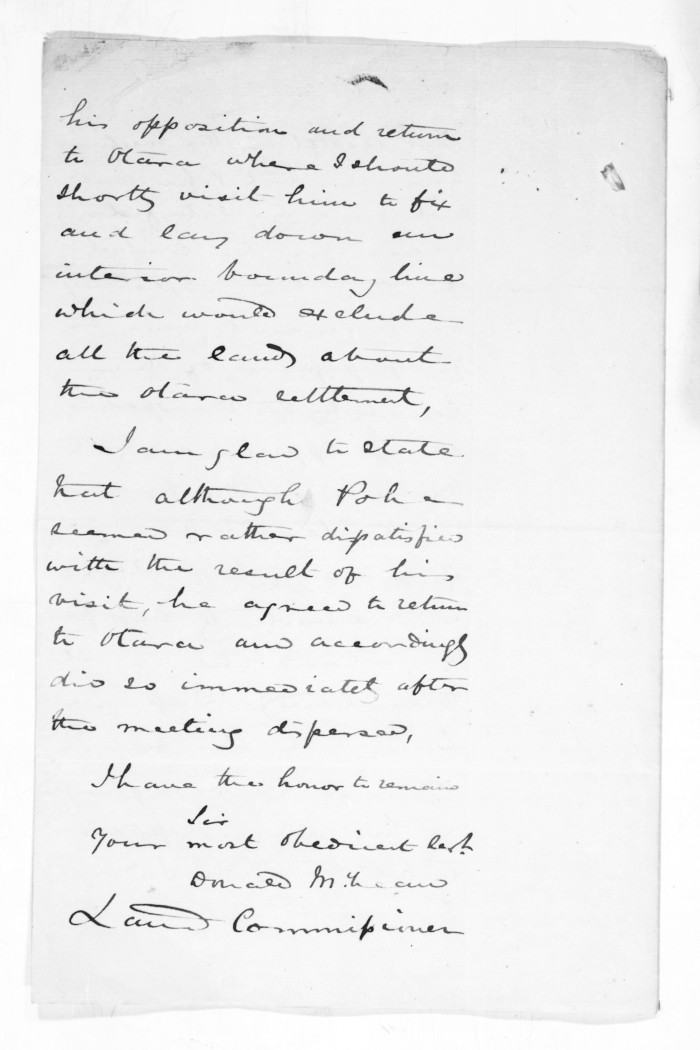 his opposition and return
to Otara where I should
shortly visit him to fix
and lay down an
interior boundary line
which would exclude
all the lands about
the Otara settlement,
I am glad to state
that although Poha
seemed rather dissatisfied
with the result of his
visit, he agreed to return
to Otara and accordingly
did so immediately after
the meeting dispersed,
I have the honor to remain
Sir
Your most obedient Servt.
Donald McLean
Land Commissioner